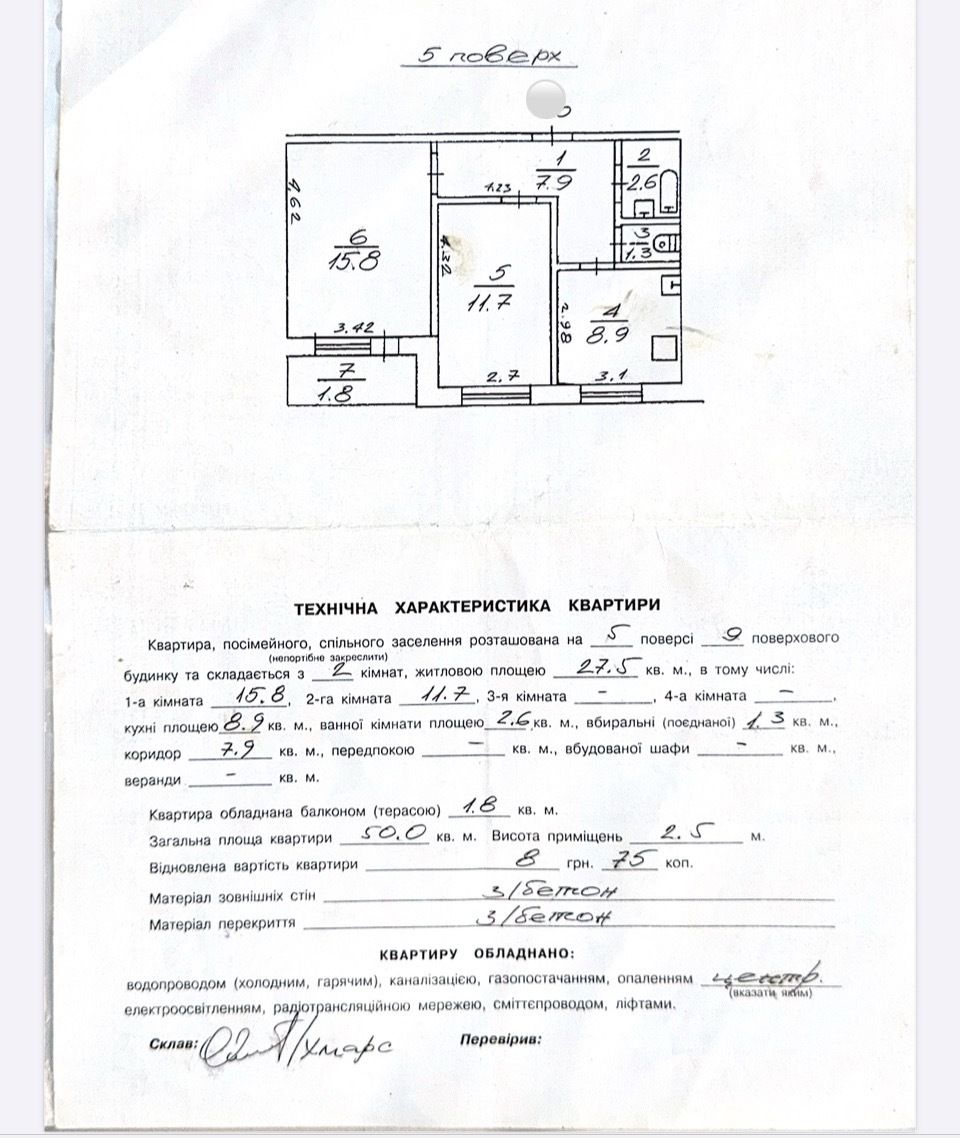 5 поверх
1
7.9
2
2.6
1.23
4.62
3
1.3
6
15.8
4.32
5
11.7
2.98
4
8.9
3.42
2.7
3.1
7
1.8
ТЕХНІЧНА ХАРАКТЕРИСТИКА КВАРТИРИ
Квартира, посімейного, спільного заселення розташована на 5 поверсі 9 поверхового
(непортібне закреслити)
будинку та складається з 2 кімнат, житловою площею 27.5 кв. м., в тому числі:
1-а кімната 15.8, 2-га кімната 11.7, 3-я кімната -, 4-а кімната -,
кухні площею 8.9 кв. м., ванної кімнати площею 2.6 кв. м., вбиральні (поєднаної) 1.3 кв. м.,
коридор 7.9 кв. м., передпокою - кв. м., вбудованої шафи - кв. м.,
веранди - кв. м.
Квартира обладнана балконом (терасою) 1.8 кв. м.
Загальна площа квартири 50.0 кв. м. Висота приміщень 2.5 м.
Відновлена вартість квартири 8 грн. 75 коп.
Матеріал зовнішніх стін з/бетон
Матеріал перекриття з/бетон
КВАРТИРУ ОБЛАДНАНО:
водопроводом (холодним, гарячим), каналізацією, газопостачанням, опаленням центр.
(вказати яким)
електроосвітленням, радіотрансляційною мережею, сміттєпроводом, ліфтами.
Склав: Перевірив: